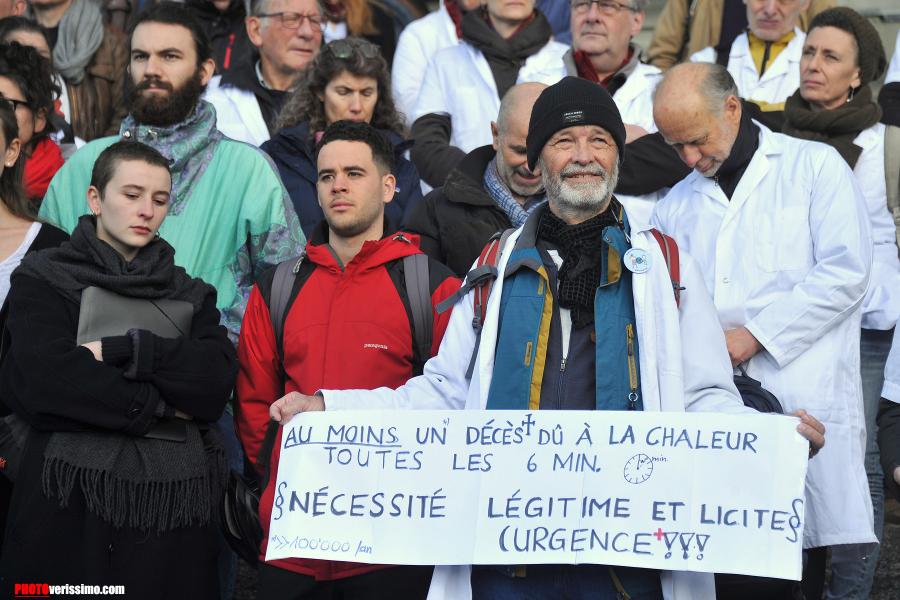 patagonia
AU MOINS UN DÉCÈS DÛ À LA CHALEUR
TOUTES LES 6 MIN.
min.
§NÉCESSITÉ LÉGITIME ET LICITE§
(URGENCE+!!!
>>100'000/an
PHOTOverissimo.com